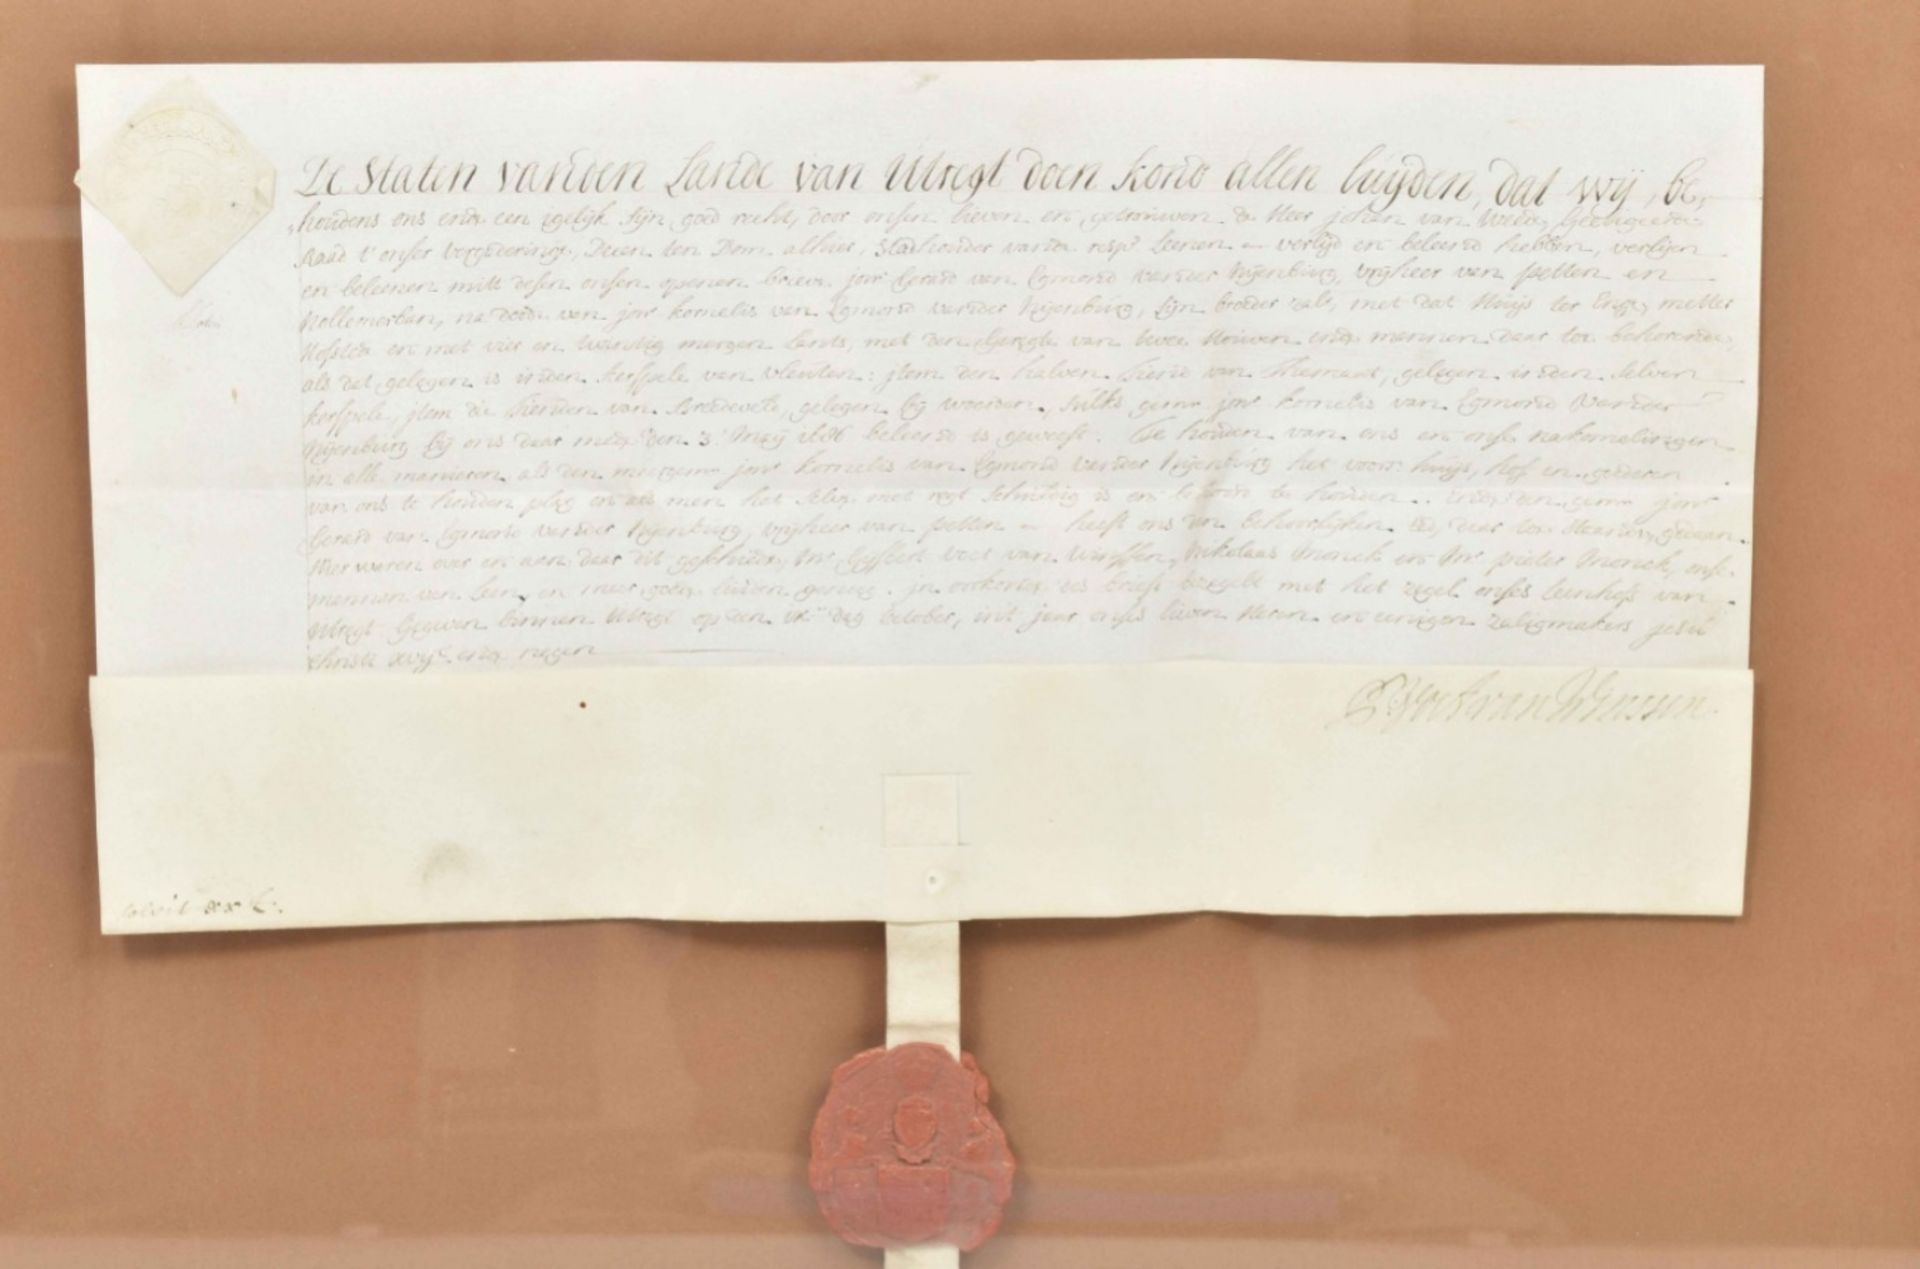 De Staten vanden Lande van Utregt doen kond allen luyden, dat wij, be,
houdens ons ende een igelijk sijn goed recht, door onsen lieven en getrouwen de Heer johan van Weede, Geëligeerde
Raad t' onser vergadering, Deken ten Dom alhier, Stadhouder vande resp. Leenen verlijd en beleend hebben, verlijen
en beleenen mitt desen onsen openen brieve jonr Gerard van Egmond vander Nijenburg, vrijheer van petten en
Nollemerban, na dode van jonr kornelis van Egmond vander Nijenburg, sijn broeder zalr, met dat Huijs ter Enge, metter
Hofstede en met vier en twintig mergen Lants, met den Geregte van twee Houven ende mannen daar toe behorende,
als dat gelegen is inden kerspele van vleuten: jtem den halven tiend van Themaat, gelegen inden selven
kerspele, jtem die tienden van Breedevelt, gelegen bij woerden, sulks gemr jonr kornelis van Egmond vander
Nijenburg bij ons daar mede den 3. Maij beleend is geweest. Te houden van ons en onse nakomelingen
in alle manieren als den meergemr jonr kornelis van Egmond vander Nijenburg het voors. huijs, hof en goederen
van ons te houden plag en als men het selve met regt schuldig is en behoord te houden. ende den gemr jonr
Gerard van Egmond vander Nijenburg, vrijheer van petten heeft ons den behoorlijken Eed, daar toe staande, gedaan.
Hier waren over en aan daar dit geschiede, Mr Gijsbert voet van Winssen, Nikolaas Monick en Mr pieter Monick, onse
mannen van leen, en meer goede luiden genoeg. jn oirkonde des briefs bezegelt met het zegel onses leenhofs van
Utregt. Gegeven binnen Utregt op den dag october, int jaar onses lieven Heren en eenigen Zaligmakers jesu
christi ende negen
G Voet van Winssen
solvit